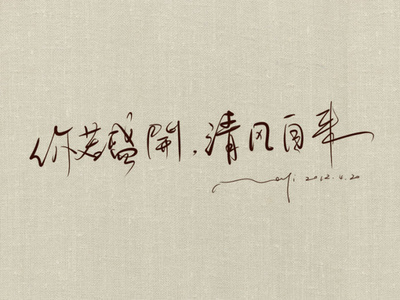 你若盛開,清风自来
2012.4.20